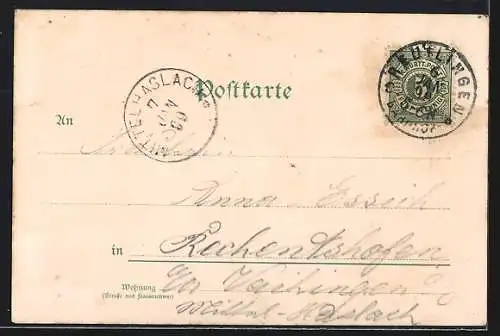 Postkarte
REUTLINGEN
MITTELHASLACH
An
Fräulein
Anna Essich
in Rechentshofen
Vaihingen
Wohnung
(Straße und Hausnummer)
Mittel-Haslach